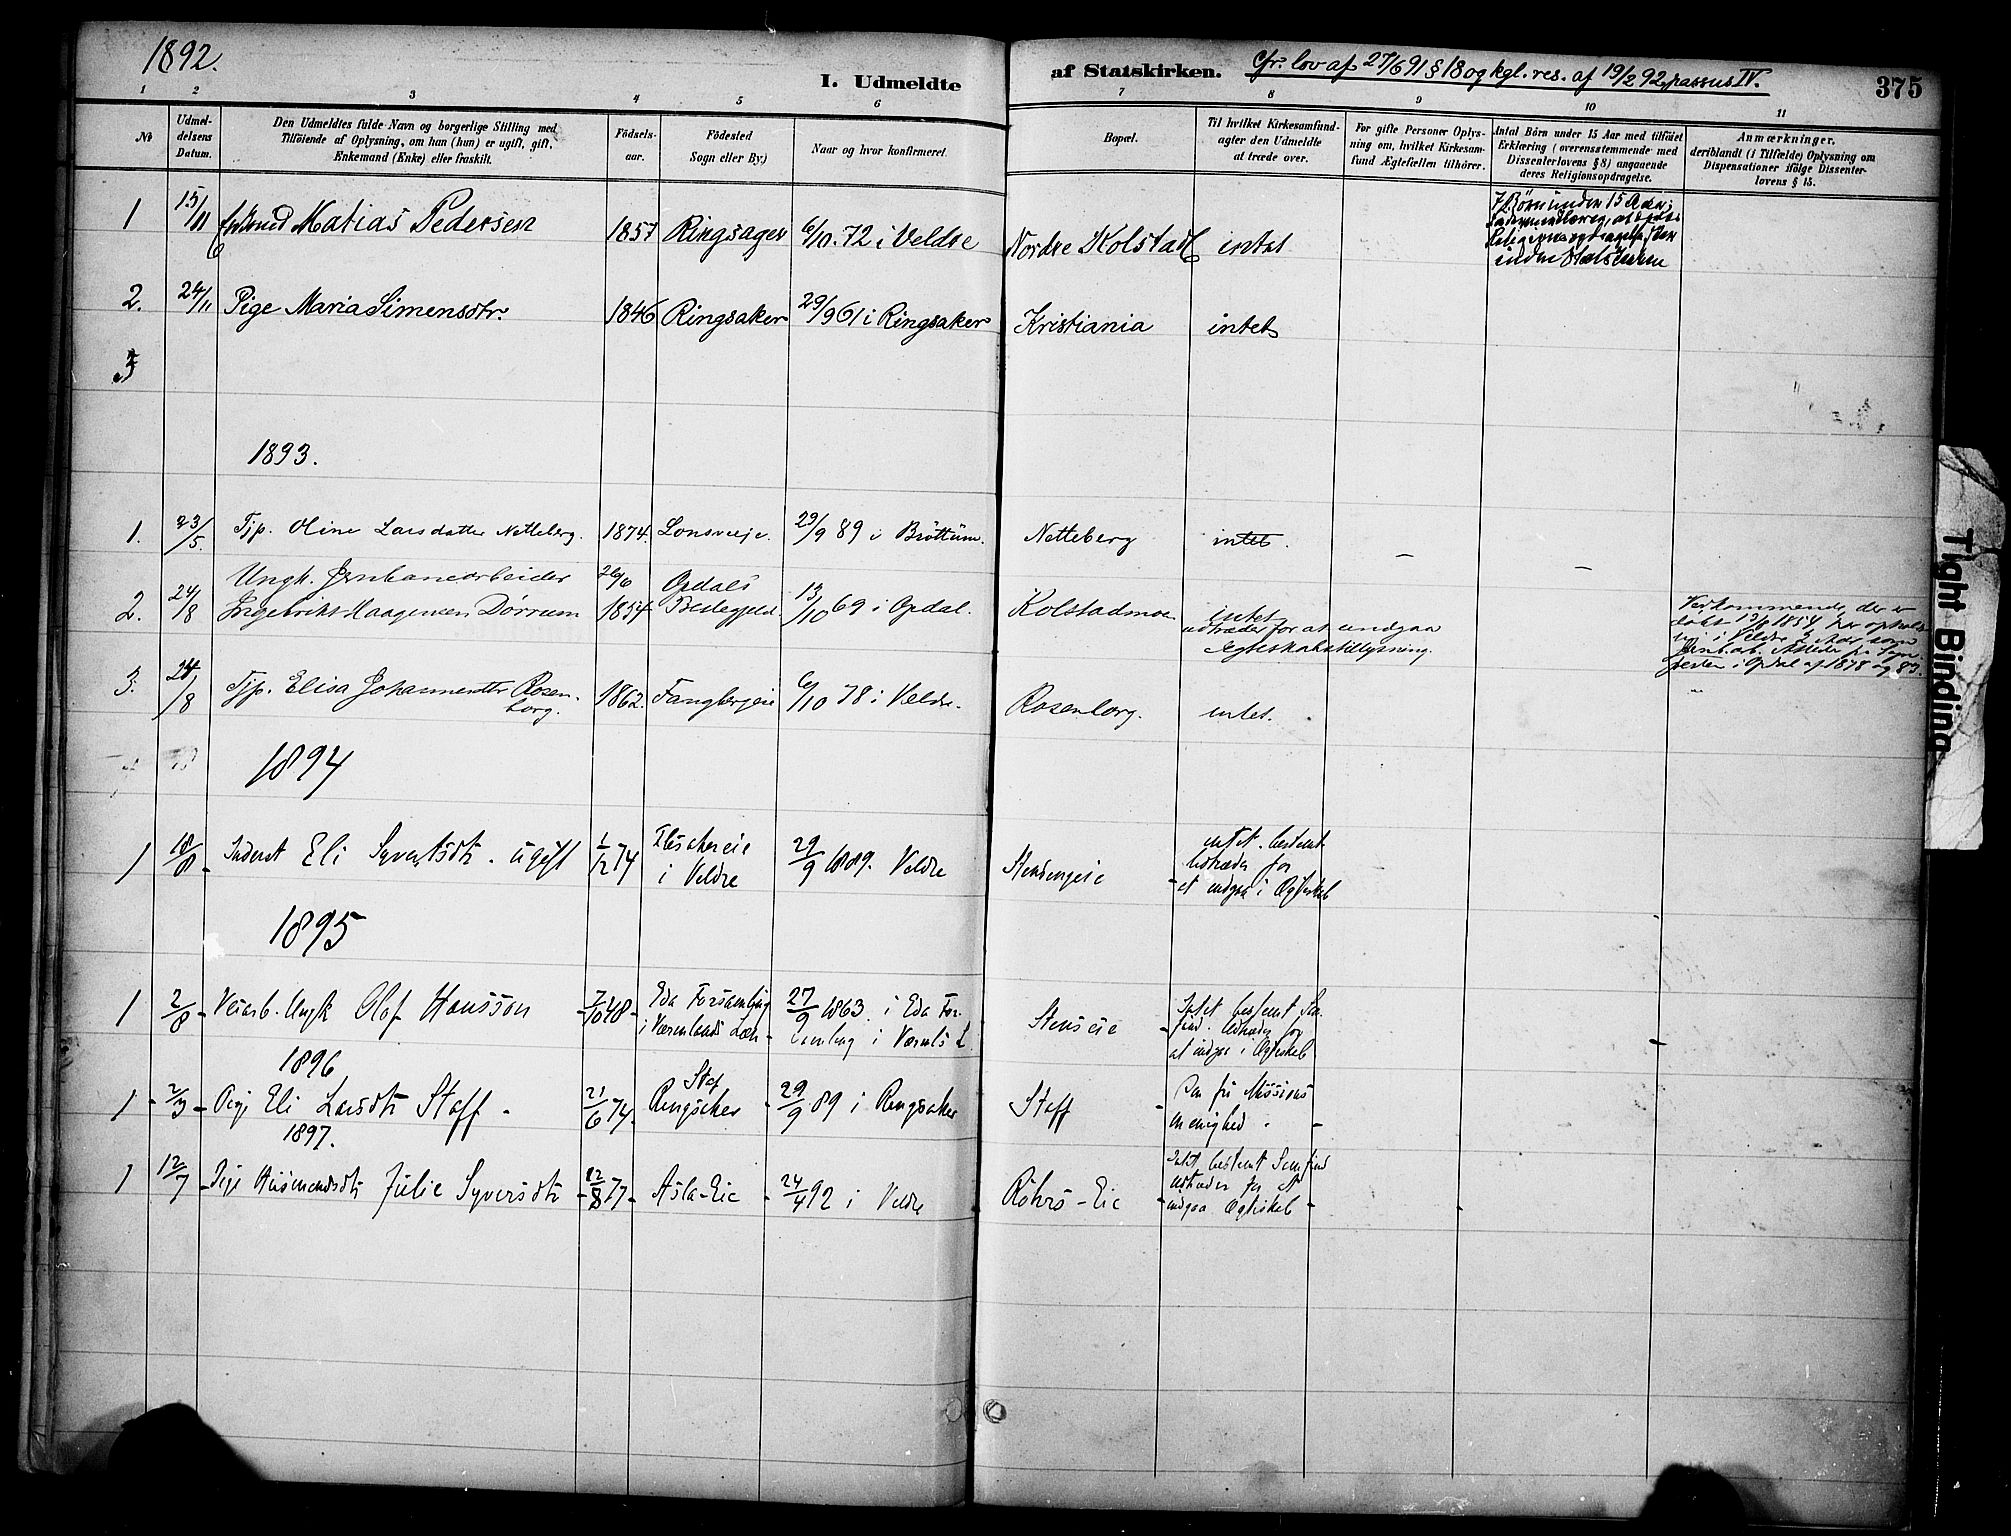 1892.
I. Udmeldte af Statskirken. Cfr. lov af 27/6 91 § 18 og kgl. res. af 19/2 92, passus IV. 375
1 2 3 4 5 6 7 8 9 10 11
No
Udmel-
delsens
Datum.
Den Udmeldtes fulde Navn og borgerlige Stilling med
Tilføiende af Oplysning, om han (hun) er ugift, gift,
Enkemand (Enke) eller fraskilt.
Födsels-
aar.
Födested
Sogn eller By.)
Naar og hvor konfirmeret.
Bopæl.
Til hvilket Kirkesamfund
agter den Udmeldte
at træde over.
For gifte Personer Oplys-
ning om, hvilket Kirkesam-
fund Ægtefællen tilhører.
Antal Börn under 15 Aar med tilföiet
Erklæring (overensstemmende med
Dissenterlovens § 8) angaaende
deres Religionsopdragelse.
Anmærkninger.
deriblandt (i Tilfælde) Oplysning om
Dispensationer ifölge Dissenter-
lovens § 15.
1 15/11 Matias Pedersen 1857 Ringsager 6/10.72 i Veldre Nordre Kolstad intet
7 Börn under 15 Aar;
under Statskirken
2. 24/11 Pige Maria Simensdtr. 1846 Ringsaker 29/9 61 i Ringsaker Kristiania intet
3
1893.
1. 23/5. Tjp. Oline Larsdatter Netteberg. 1874. Lonsveeje. 29/9 89 i Bröttum. Netteberg intet. – –
2. 24/8 Ungk. Jernbanearbeider
Ingebrikt Haagensen Dörrum 26/6 1854. Opdals
Prestegjeld. 13/10 69 i Opdal. Kolstadmoen intet
udtræder for at undgaa
Ægteskabstillysning.
Vedkommende, der er
döbt 1854, har opholdt
sig i Veldre 2 Aar som
i Opdal af 1878 og 83.
3. 24/8 Tjp. Elisa Johannesdtr Rosen-
borg. 1862. Fangbergeie 6/10 78 i Veldre. Rosenborg. intet.
1894
1 18/8 - Inderst Eli Syvertsdtr. ugift 1/12 74 
i Veldre 29/9 1889. Veldre Stensengeie intet bestemt
Udtræder for
at indgaa i Ægteskab
1895
1 2/8 - Veiarb. Ungk Olof Hansson - 7/10 48 - Eda Forsamling
i Værmlands Læn - 27/9 1863. i Eda For-
samling i Værmls L. Stenseie - Intet bestemt Sam-
fund. Udtræder for
at indgaa i Ægteskab -
1896
1 - 2/3 - Pige Eli Larsdtr Staff - 21/6 74. Staf
Ringsaker - 29/9 89 i Ringsaker Staff - Den fri Missions
menighed. -
1897.
1 12/7 - Pige Husmandsdtr Julie Syversdtr - 12/8 77 - Asla-Eie - 24/4 92 i Veldre Röhrs-Eie - Intet bestemt Samfund
Udtræder for at
indgaa Ægteskab -
Tight Binding